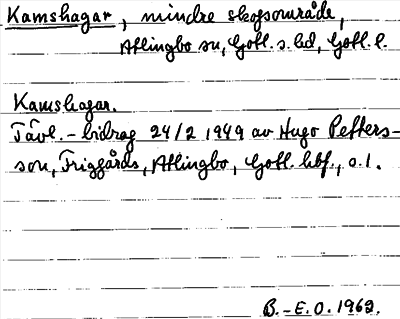 Kamshagar, mindre skogsområde,
Atlingbo sn, Gotl. s. hd, Gotl. l.
Kamshagar.
Tävl.-bidrag 24/2 1949 av Hugo Petters-
son, Friggårds, Atlingbo, Gotl. hbf., o.l.
B.-E.O. 1962.